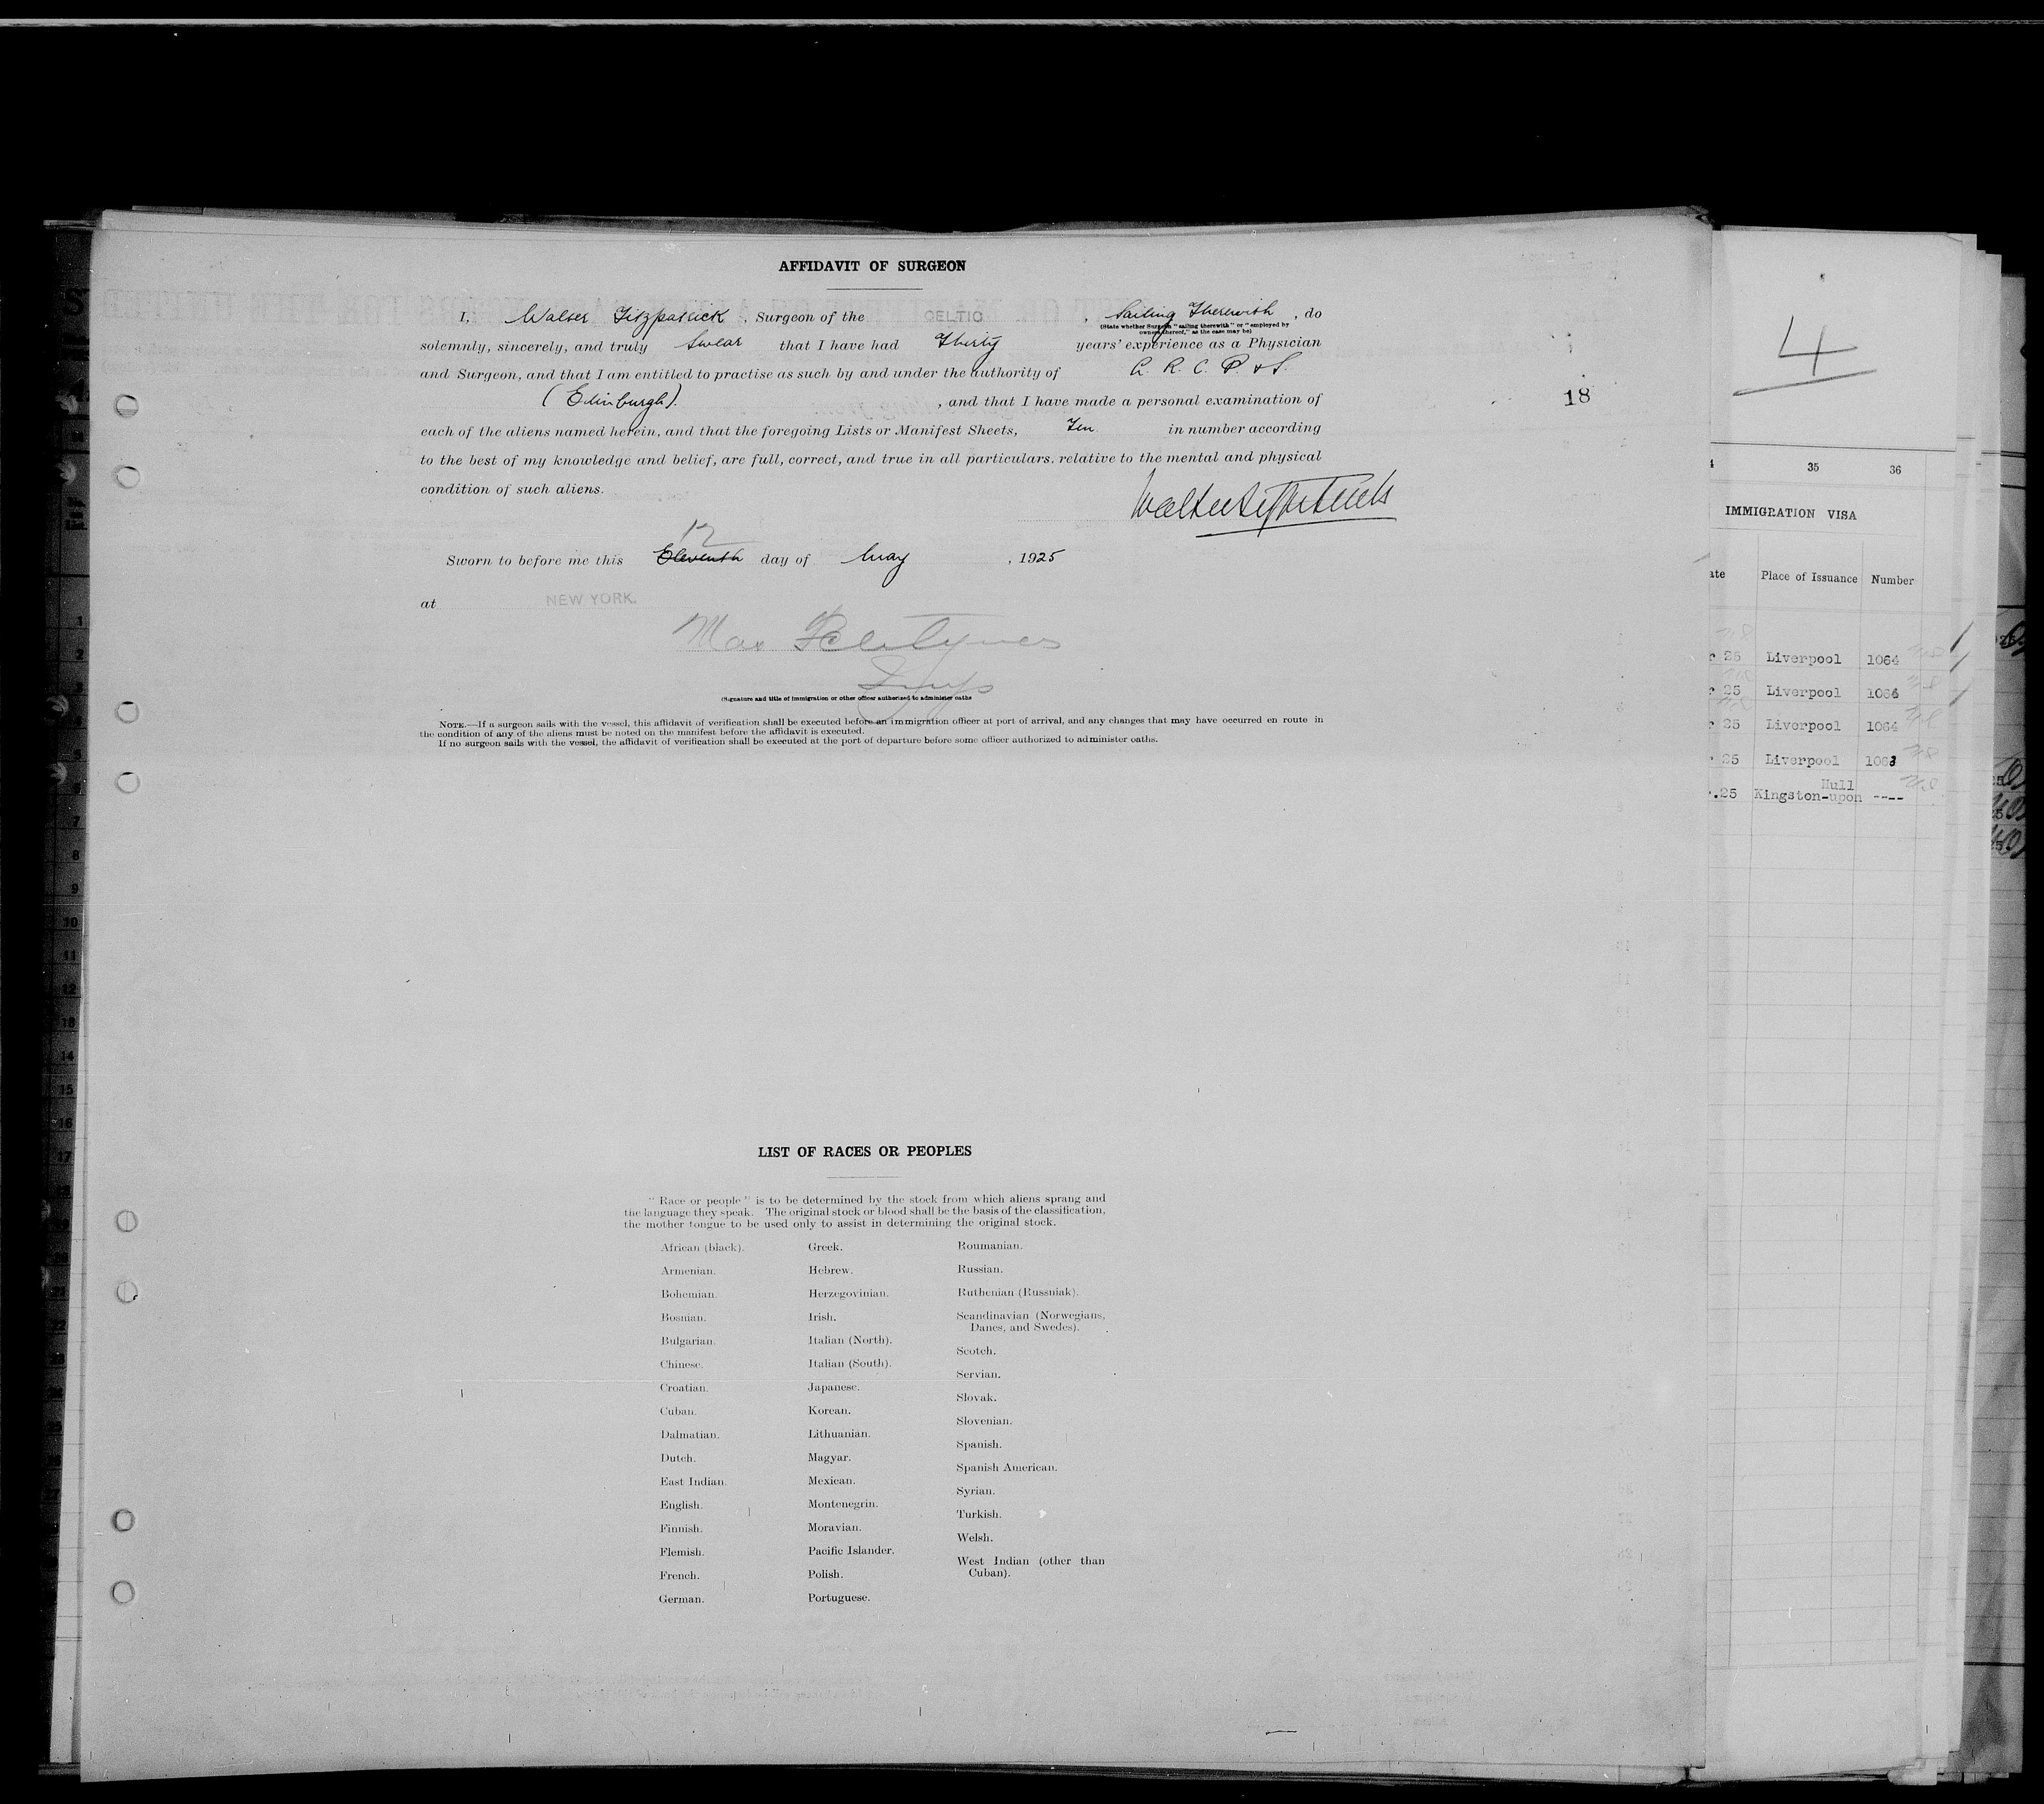 AFFIDAVIT OF SURGEON
I, Walter Fitzpatrick, Surgeon of the CELTIC, Sailing Therewith, do
(State whether Surgeon "sailing therewith" or "employed by
owners thereof," as the case may be)
solemnly, sincerely, and truly Swear that I have had Thirty years' experience as a Physician
and Surgeon, and that I am entitled to practise as such by and under the authority of L. R. C. P. & S.
(Edinburgh), and that I have made a personal examination of
18
each of the aliens named herein, and that the foregoing Lists or Manifest Sheets, Ten in number according
to the best of my knowledge and belief, are full, correct, and true in all particulars. relative to the mental and physical
condition of such aliens.
Walter Fitzpatrick
12
Sworn to before me this Eleventh day of May, 1925
at NEW YORK.
Max
Insp
(Signature and title of immigration or other officer authorized to administer oaths
NOTE.—If a surgeon sails with the vessel, this affidavit of verification shall be executed before an immigration officer at port of arrival, and any changes that may have occurred en route in
the condition of any of the aliens must be noted on the manifest before the affidavit is executed.
If no surgeon sails with the vessel, the affidavit of verification shall be executed at the port of departure before some officer authorized to administer oaths.
LIST OF RACES OR PEOPLES
"Race or people" is to be determined by the stock from which aliens sprang and
the language they speak. The original stock or blood shall be the basis of the classification,
the mother tongue to be used only to assist in determining the original stock.
African (black).
Armenian.
Bohemian.
Bosnian.
Bulgarian.
Chinese.
Croatian.
Cuban.
Dalmatian.
Dutch.
East Indian.
English.
Finnish.
Flemish.
French.
German.
Greek.
Hebrew.
Herzegovinian.
Irish.
Italian (North).
Italian (South).
Japanese.
Korean.
Lithuanian.
Magyar.
Mexican.
Montenegrin.
Moravian.
Pacific Islander.
Polish.
Portuguese.
Roumanian.
Russian.
Ruthenian (Russniak).
Scandinavian (Norwegians,
Danes, and Swedes).
Scotch.
Servian.
Slovak.
Slovenian.
Spanish.
Spanish American.
Syrian.
Turkish.
Welsh.
West Indian (other than
Cuban).
4
35 36
IMMIGRATION VISA
Place of Issuance Number
25 Liverpool 1064
25 Liverpool 1066
25 Liverpool 1064
25 Liverpool 1063
Hull
.25 Kingston-upon ----
1
2
3
4
5
6
7
8
9
10
11
12
13
14
15
16
17